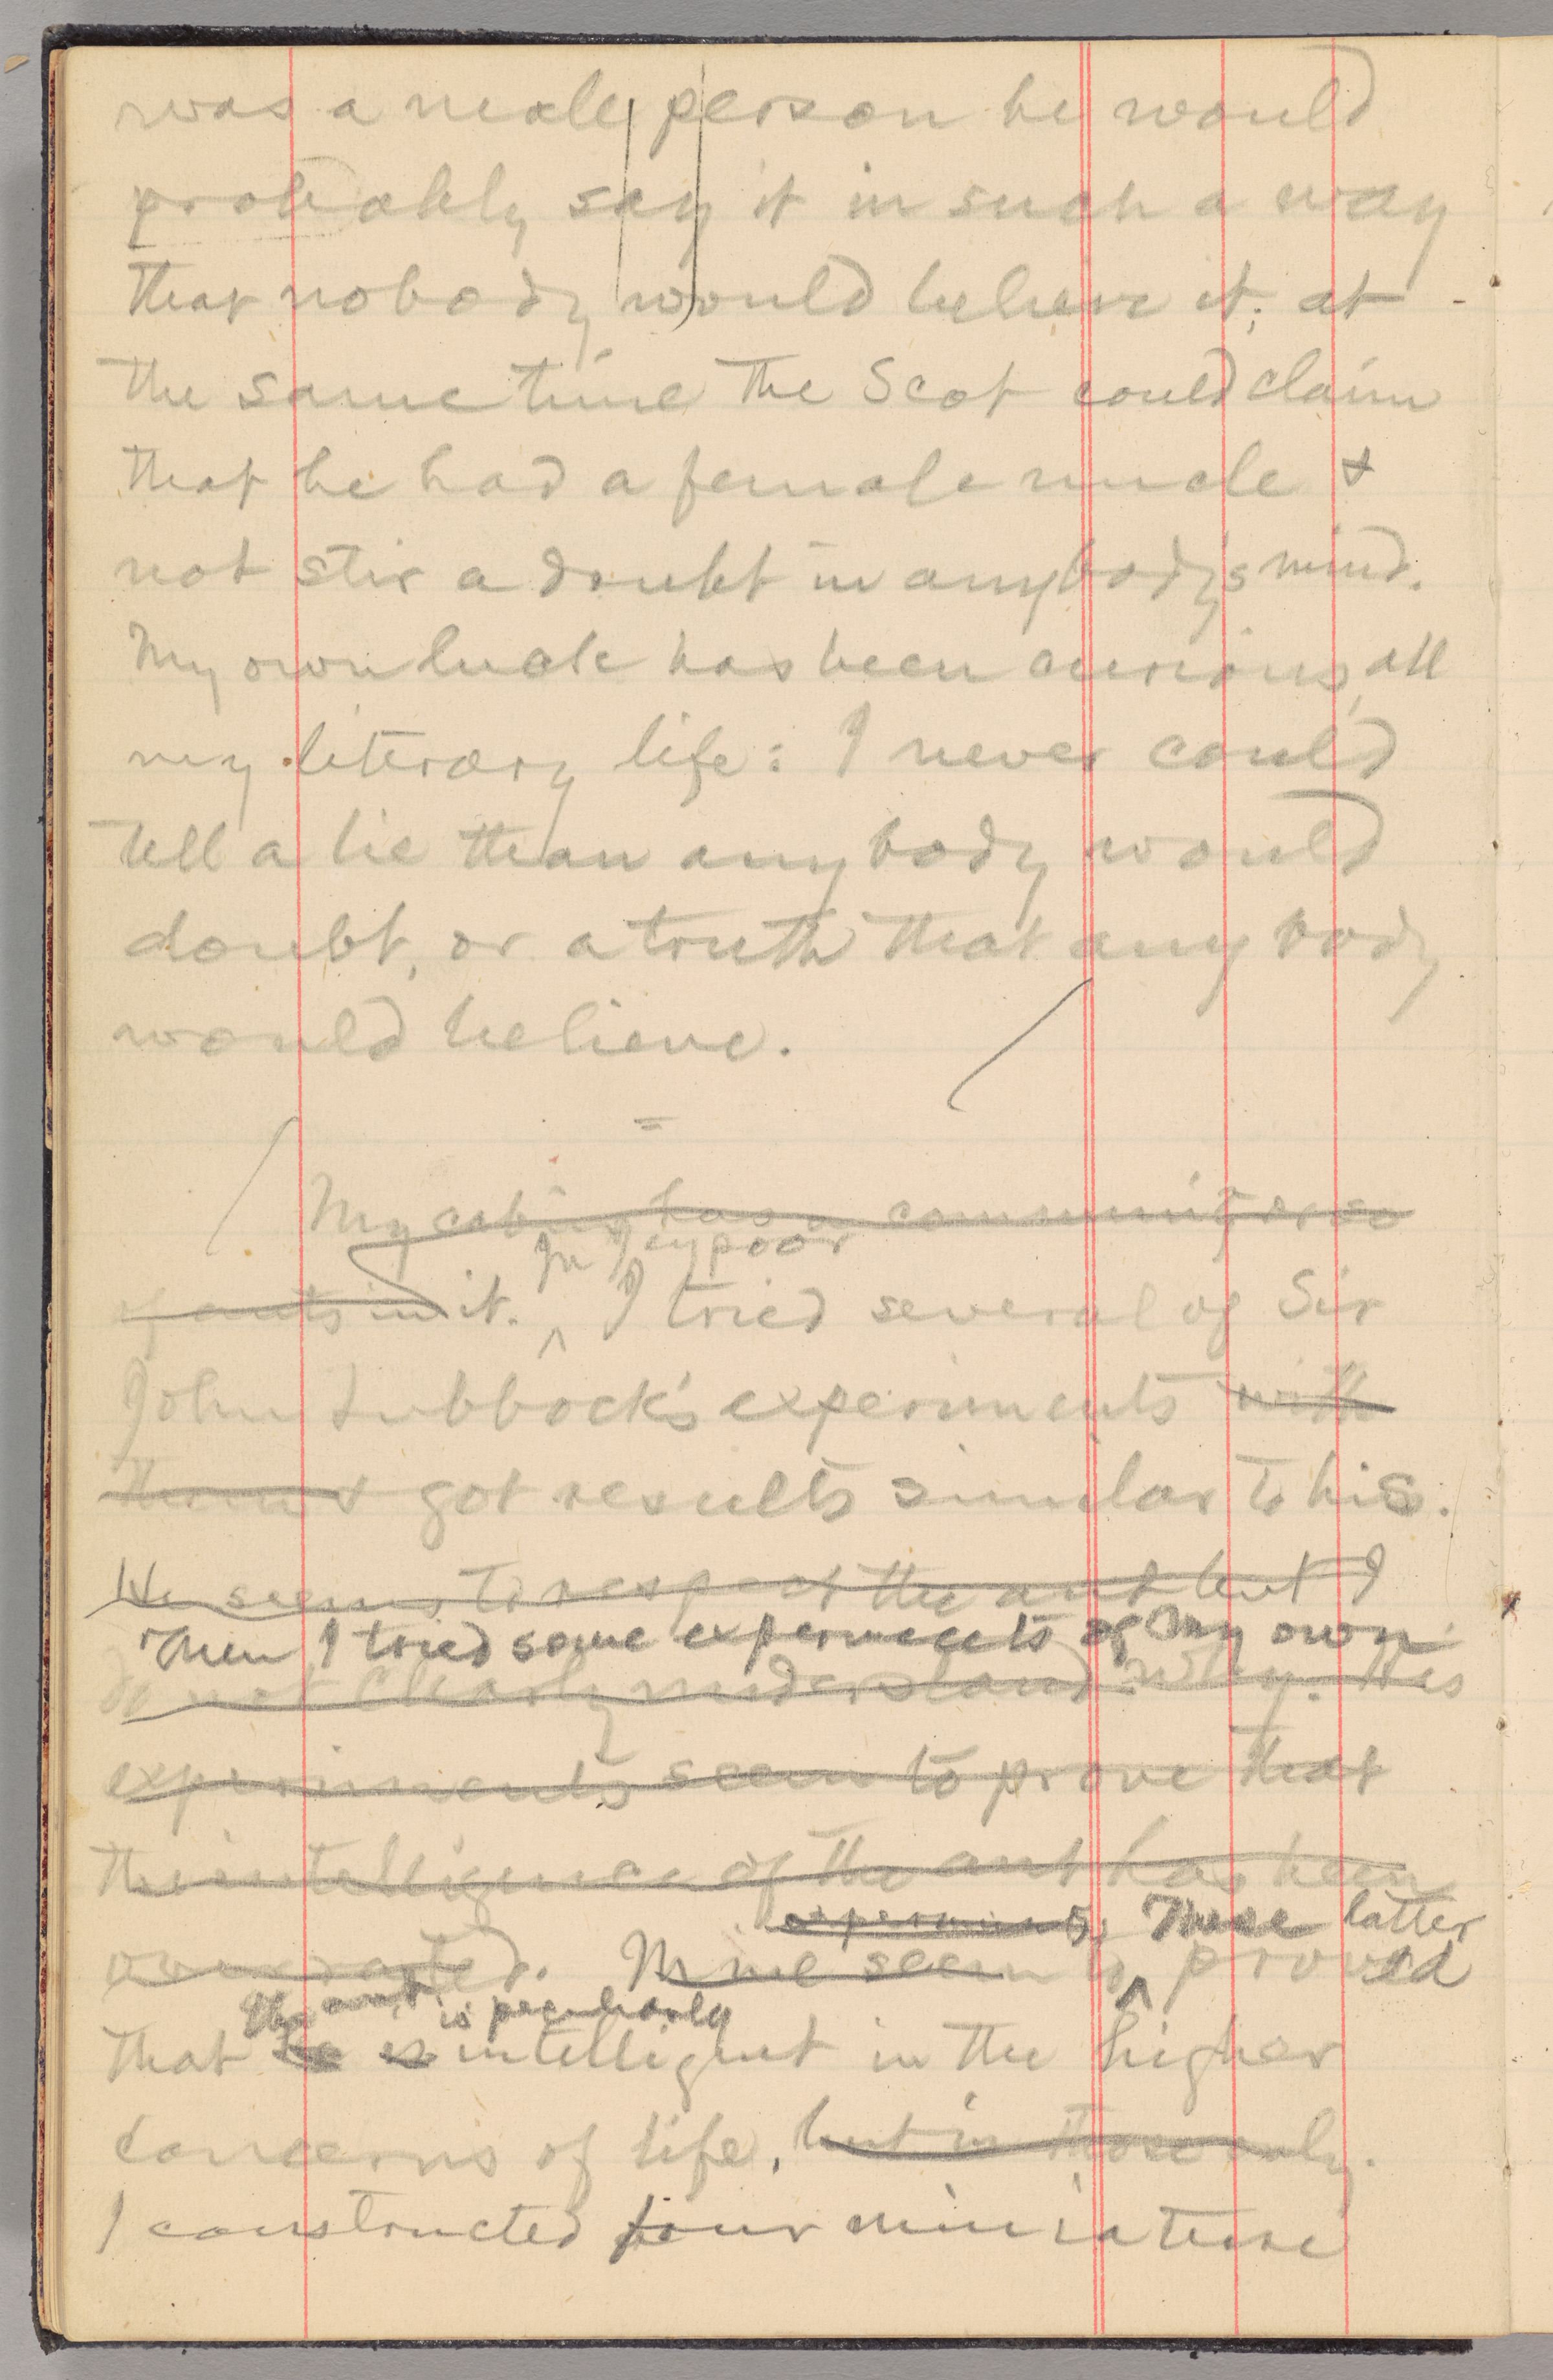 was a male person he would
probably say it in such a way
that nobody would believe it; at
the same time the Scot could claim
that he had a female uncle &
not stir a doubt in anybody's mind.
My own luck has been curious, all
my literary life: I never could
tell a lie than anybody would
doubt, or a truth that anybody
would believe.
=
My cabin has a community or so
In Jeypoor
of ants in it. ^ I tried several of Sir
John Lubbock's experiments with
them & got results similar to his.
He seems to respect the ant but I
Then I tried some experiments of my own.
do not clearly understand why. His
experiments seem to prove that
the intelligence of the ant has been
experiments, These latter
overrated. Mine seem to ^ proved
the ant is peculiarly
that he is intelligent in the higher
concerns of life, but in those only.
I constructed four miniature